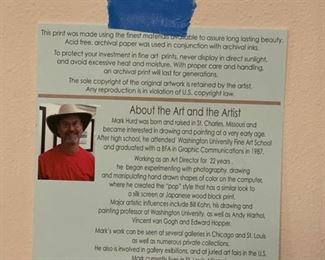 This print was made using the finest materials available to assure long lasting beauty.
Acid free, archival paper was used in conjunction with archival inks.
To protect your investment in fine art prints, never display in direct sunlight,
and avoid excessive heat and moisture. With proper care and handling,
an archival print will last for generations.
The sole copyright of the original artwork is retained by the artist.
Any reproduction is in violation of U.S. copyright law.
About the Art and the Artist
Mark Hurd was born and raised in St. Charles, Missouri and
became interested in drawing and painting at a very early age.
After high school, he attended Washington University Fine Art School
and graduated with a BFA in Graphic Communications in 1987.
Working as an Art Director for 22 years,
he began experimenting with photography, drawing
and manipulating hand drawn shapes of color on the computer,
where he created the "pop" style that has a similar look to
a silk screen or Japanese wood block print.
Major artistic influences include Bill Kohn, his drawing and
painting professor at Washington University, as well as Andy Warhol,
Vincent van Gogh and Edward Hopper.
Mark's work can be seen at several galleries in Chicago and St. Louis
as well as numerous private collections.
He is also involved in gallery exibitions, and at juried art fairs
Mark currently lives in St. Louis